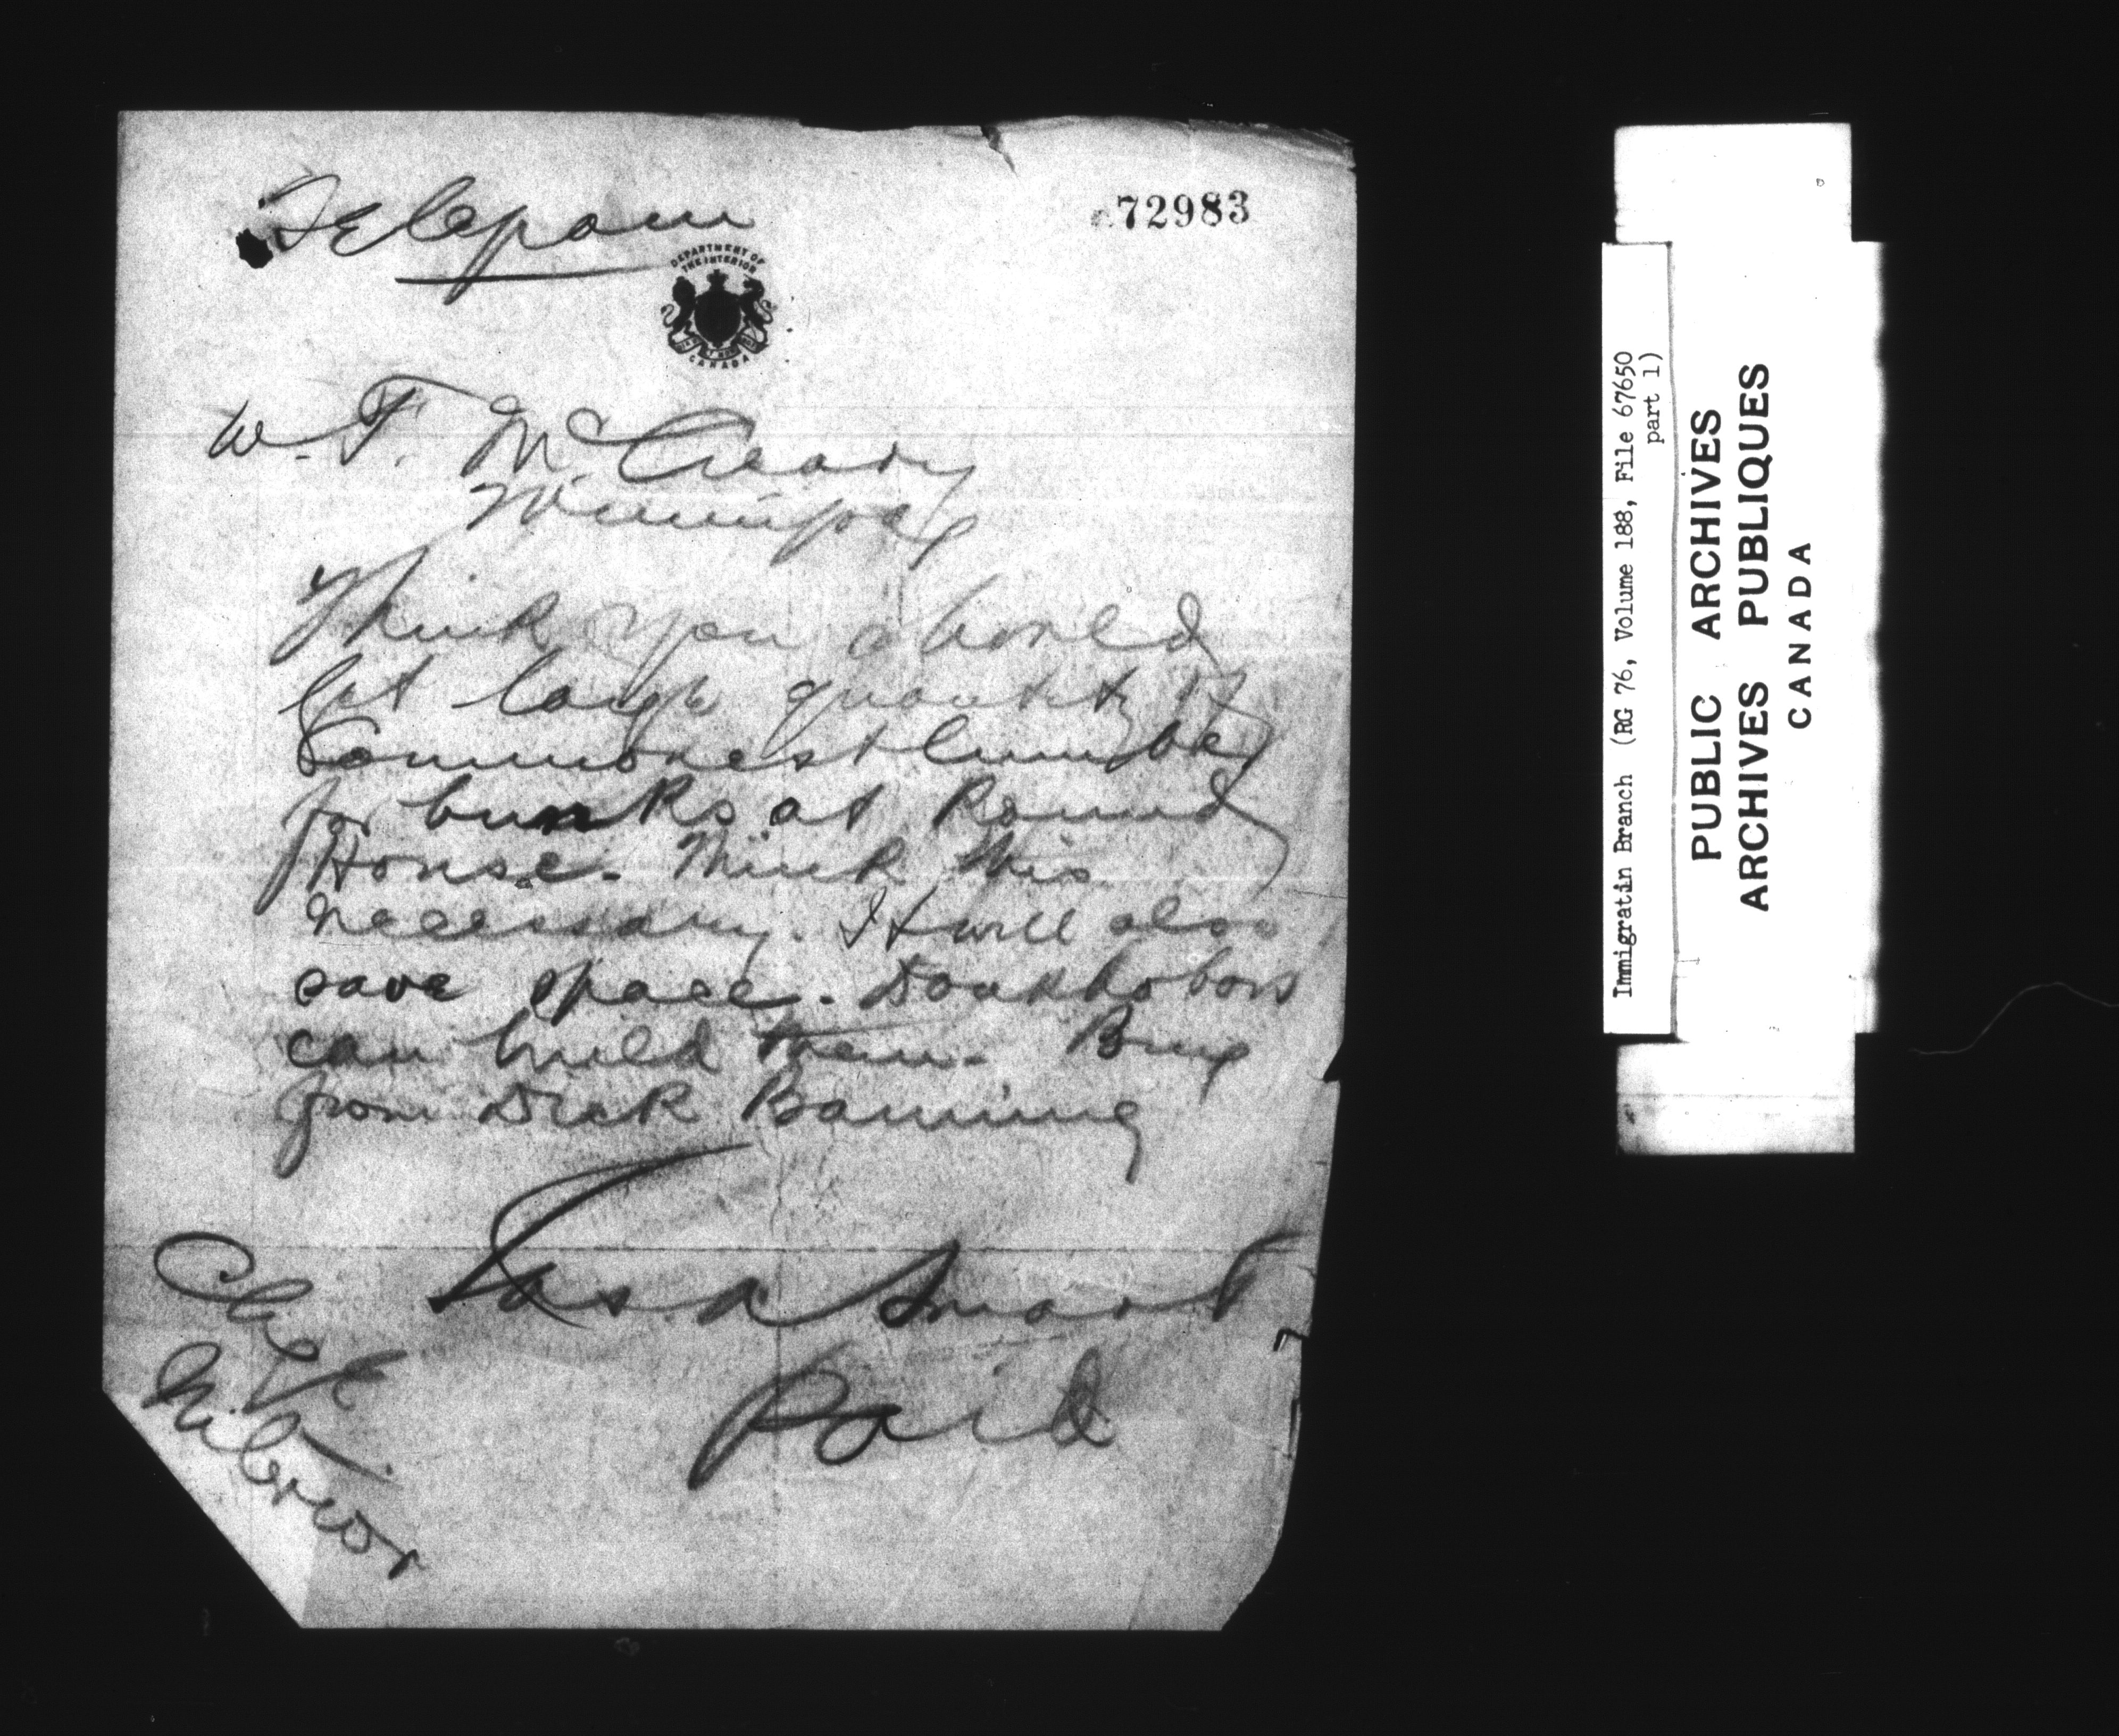 Telegram
72983
DEPARTMENT OF
THE INTERIOR
CANADA
W. F. McCreary
Winnipeg
Think you should
let large quantity of
Commonest lumber
for bunks at Round
House. Think this
necessary. It will also
save space. Doukhobors
can build them. Buy
from Dick Banning
Jas A Smart
Paid
Chge
Interior
Immigratin Branch (RG 76, Volume 188, File 67650
part 1)
PUBLIC ARCHIVES
ARCHIVES PUBLIQUES
CANADA